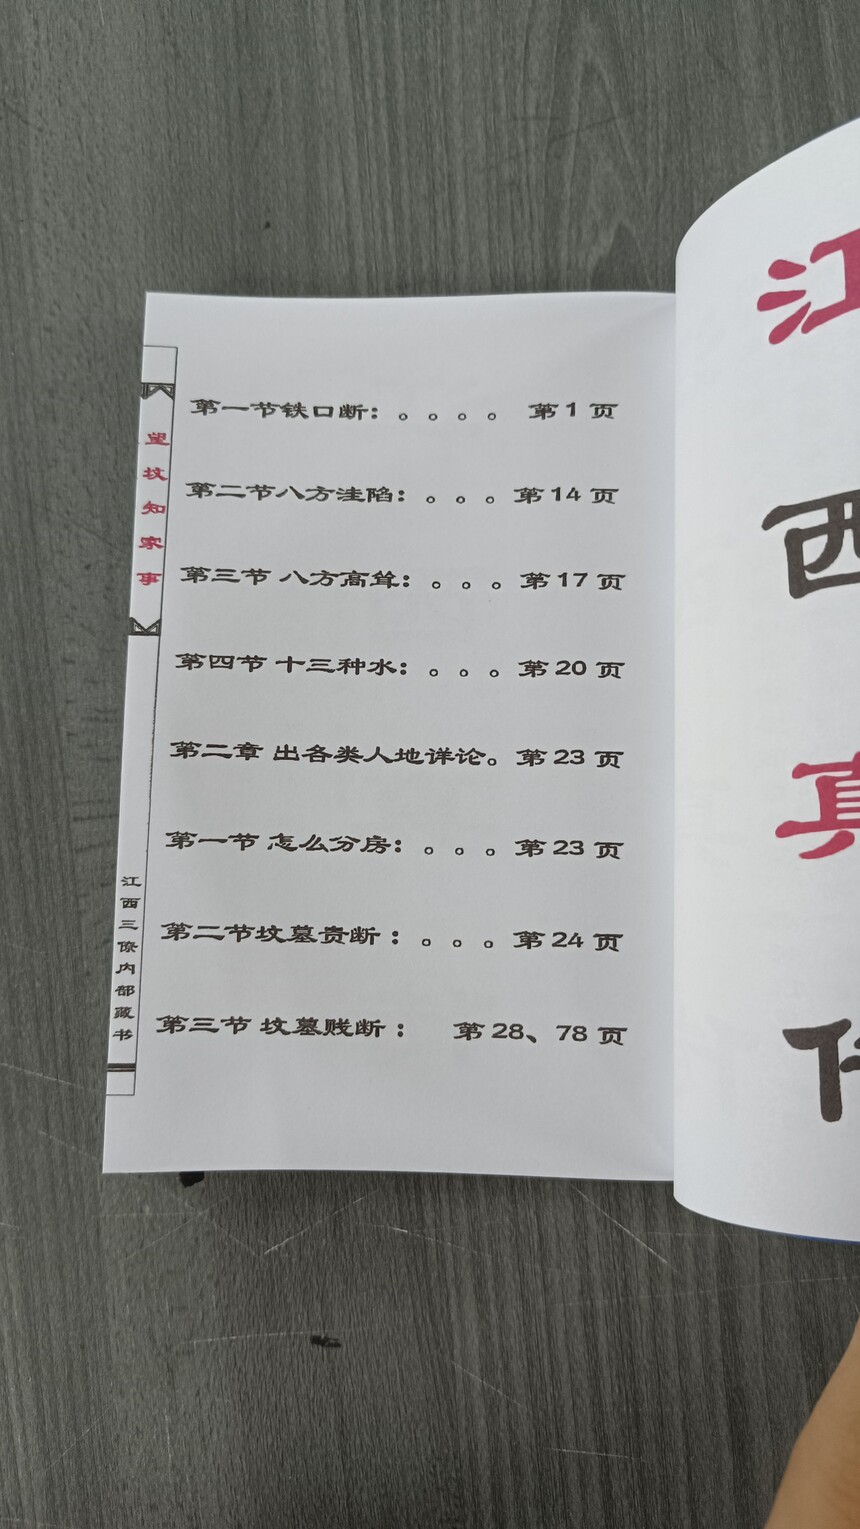 望坟知家事
江西三僚内部藏书
第一节铁口断：。。。。 第1页
第二节八方洼陷：。。。第14页
第三节 八方高耸：。。。第17页
第四节 十三种水：。。。第20页
第二章 出各类人地详论。第23页
第一节 怎么分房：。。。第23页
第二节坟墓贵断：。。。第24页
第三节 坟墓贱断： 第28、78页
江
西
真